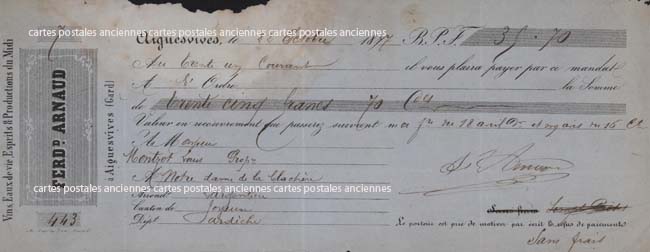 Vins, Eaux de vie Esprits & Productions du Midi
FERD. ARNAUD
à Aiguesvives (Gard)
443
7
cartes postales anciennes cartes postales anciennes cartes postales anciennes
Aiguesvives, le 8 Octobre 1877 B.P.F. 35.70
Au trente un Courant il vous plaira payer par ce mandat
A M/ Ordre la Somme
de trente cinq francs 70 Ces
Valeur en recouvrement que passerez suivant ma fre du 18 avril
A Monsieur
Louis
A Notre dame de la
cartes postales anciennes cartes postales anciennes cartes postales anciennes
Arrond. Largentière
Canton de Joyeuse
Dépt. ardèche
Le porteur est prié de motiver par écrit le refus de paiement.
Sans frais